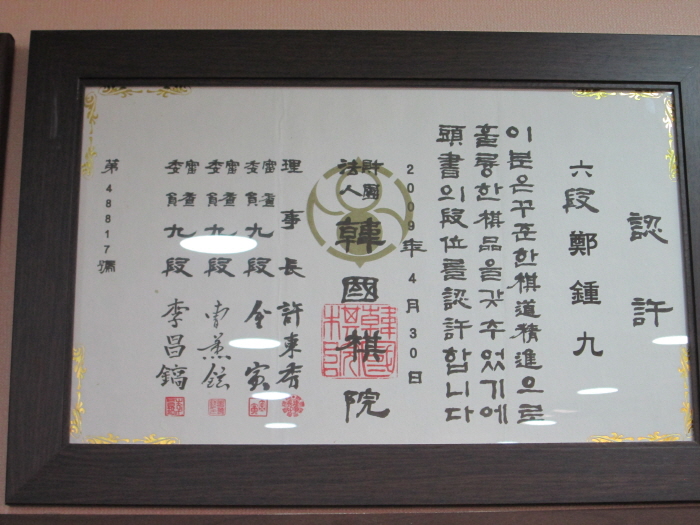 認許
六段 鄭鍾九
이 분은 꾸준한 棋道精進으로
훌륭한 棋品을 갖추었기에
頭書의 段位를 認許합니다
2009年 4月 30日
財團法人 韓國棋院
理事長 許東秀
審査委員 九段 金寅
審査委員 九段 曺薰鉉
審査委員 九段 李昌鎬
第 48817 號